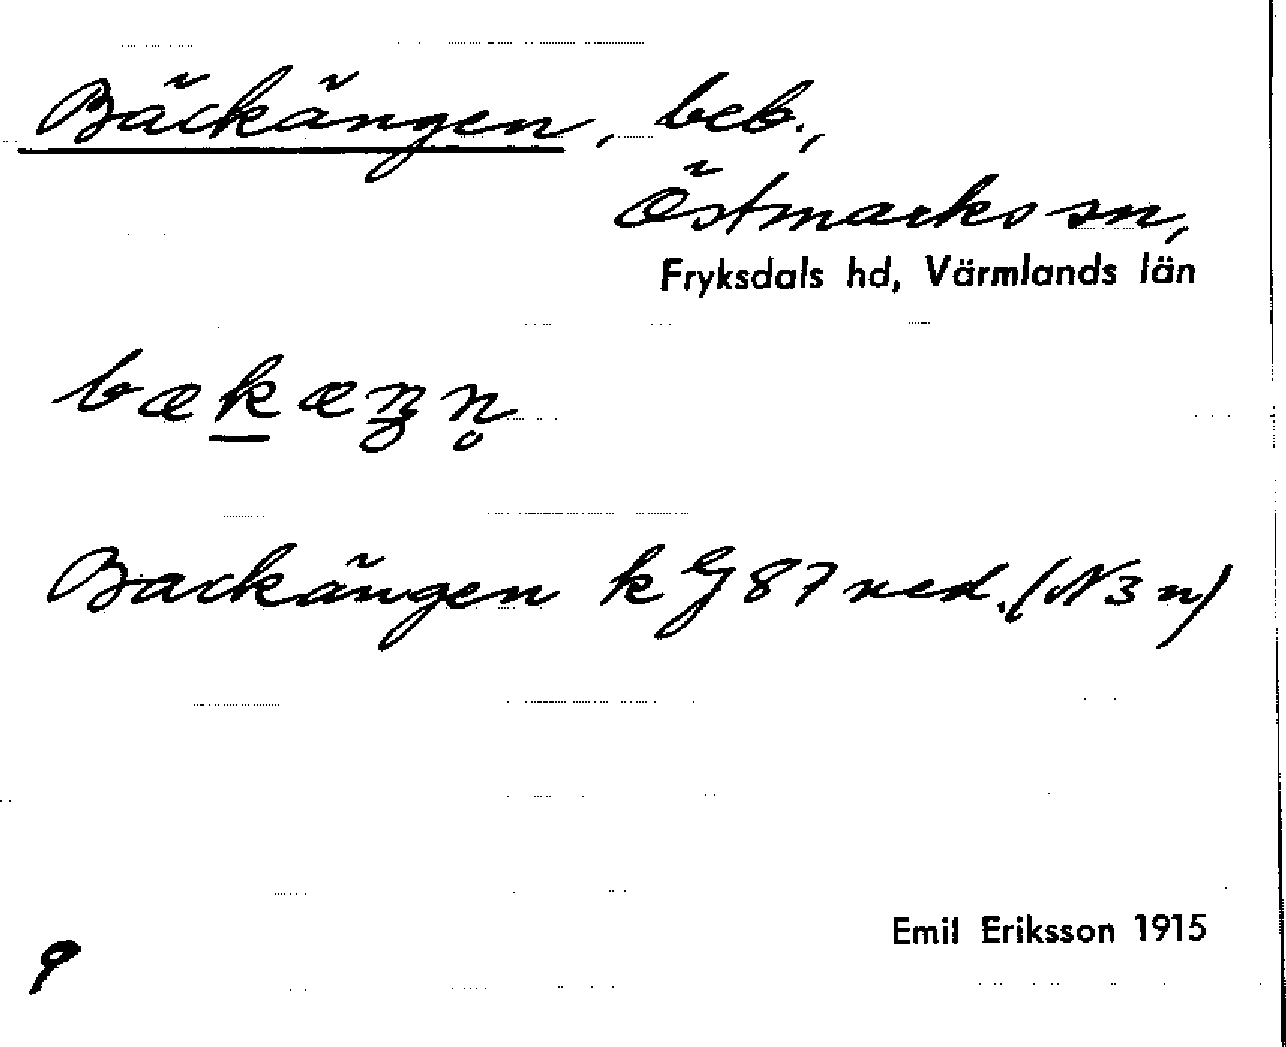 Bäckängen, beb.,
Östmarks sn,
Fryksdals hd, Värmlands län
bækæŋn̥
Backängen k G 87 ned. (N3n)
Emil Eriksson 1915
9